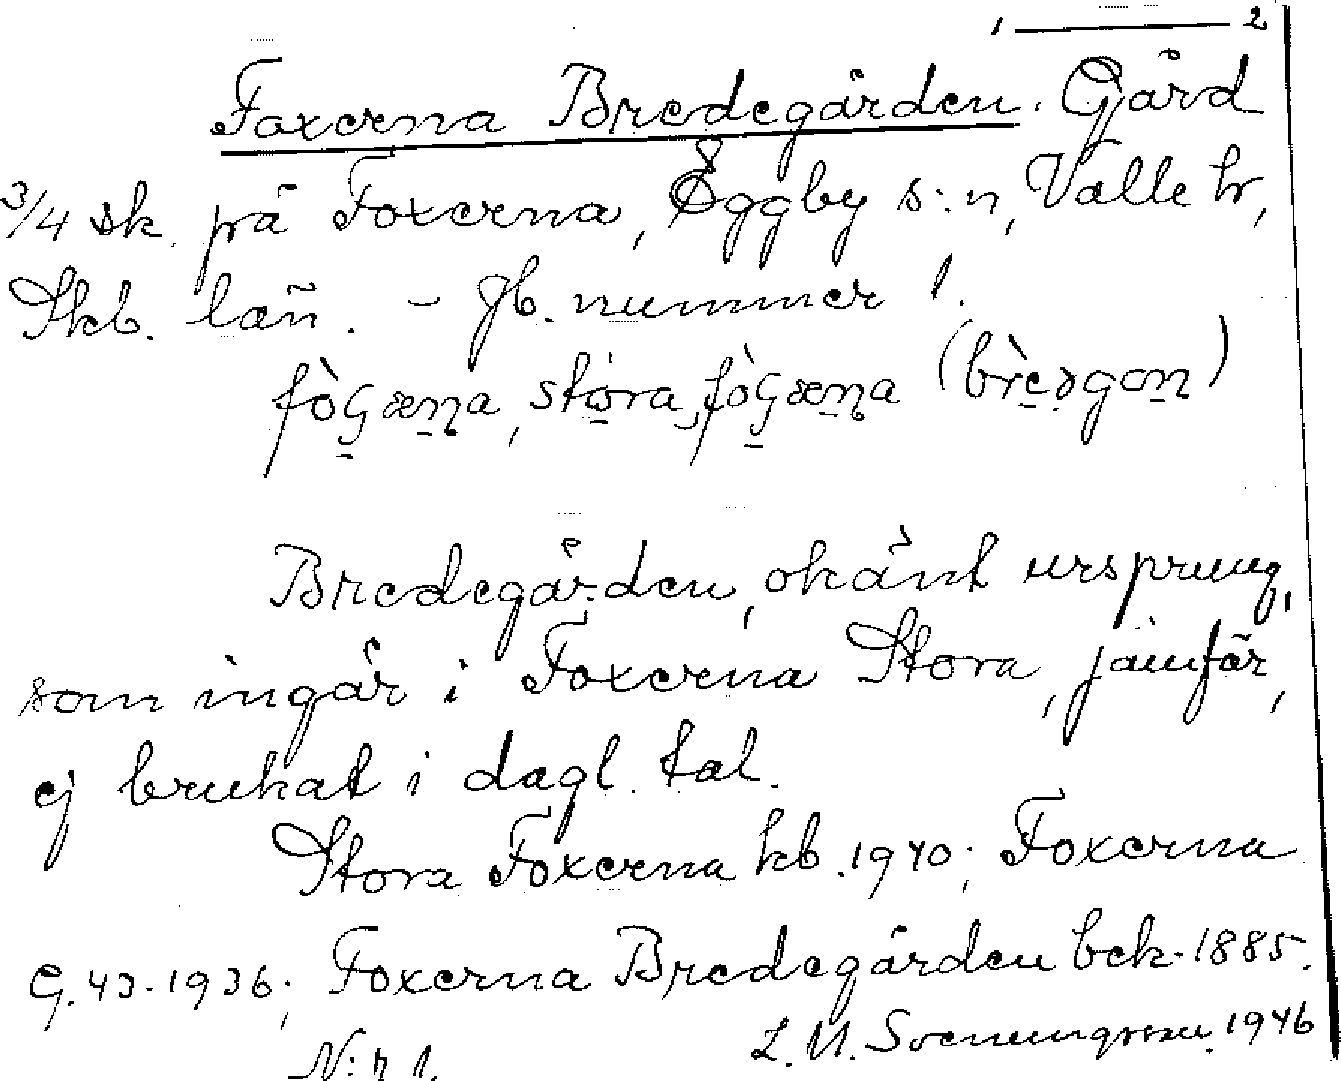 1 — 2
Foxerna Bredegården. Gård
3/4 sk. på Foxerna, Eggby s:n, Valle hr,
Skb. län. – Jb. nummer 1.
fòɢæɳa, stora fòɢæɳa (brèəgɑɳ)
Bredegården, okänt ursprung,
som ingår i Foxerna Stora, jämför,
ej brukat i dagl. tal.
Stora Foxerna kb. 1940; Foxerna
G. 43. 1936; Foxerna Bredegården bek. 1885.
N:r 1. L. M. Svenungsson. 1946